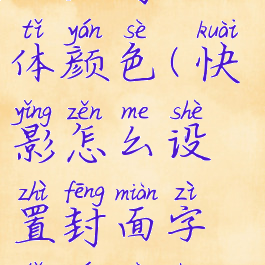 tǐ yán sè kuài
体颜色(快
yǐng zěn me shè
影怎么设
zhì fēng miàn zì
置封面字